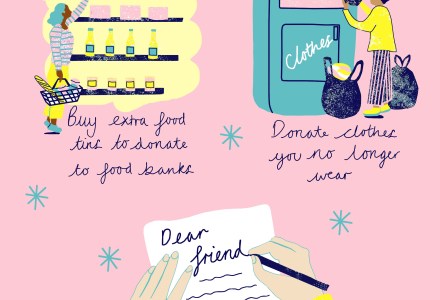 Clothes
Buy extra food
tins to donate
to food banks
Donate clothes
you no longer
wear
Dear
friend